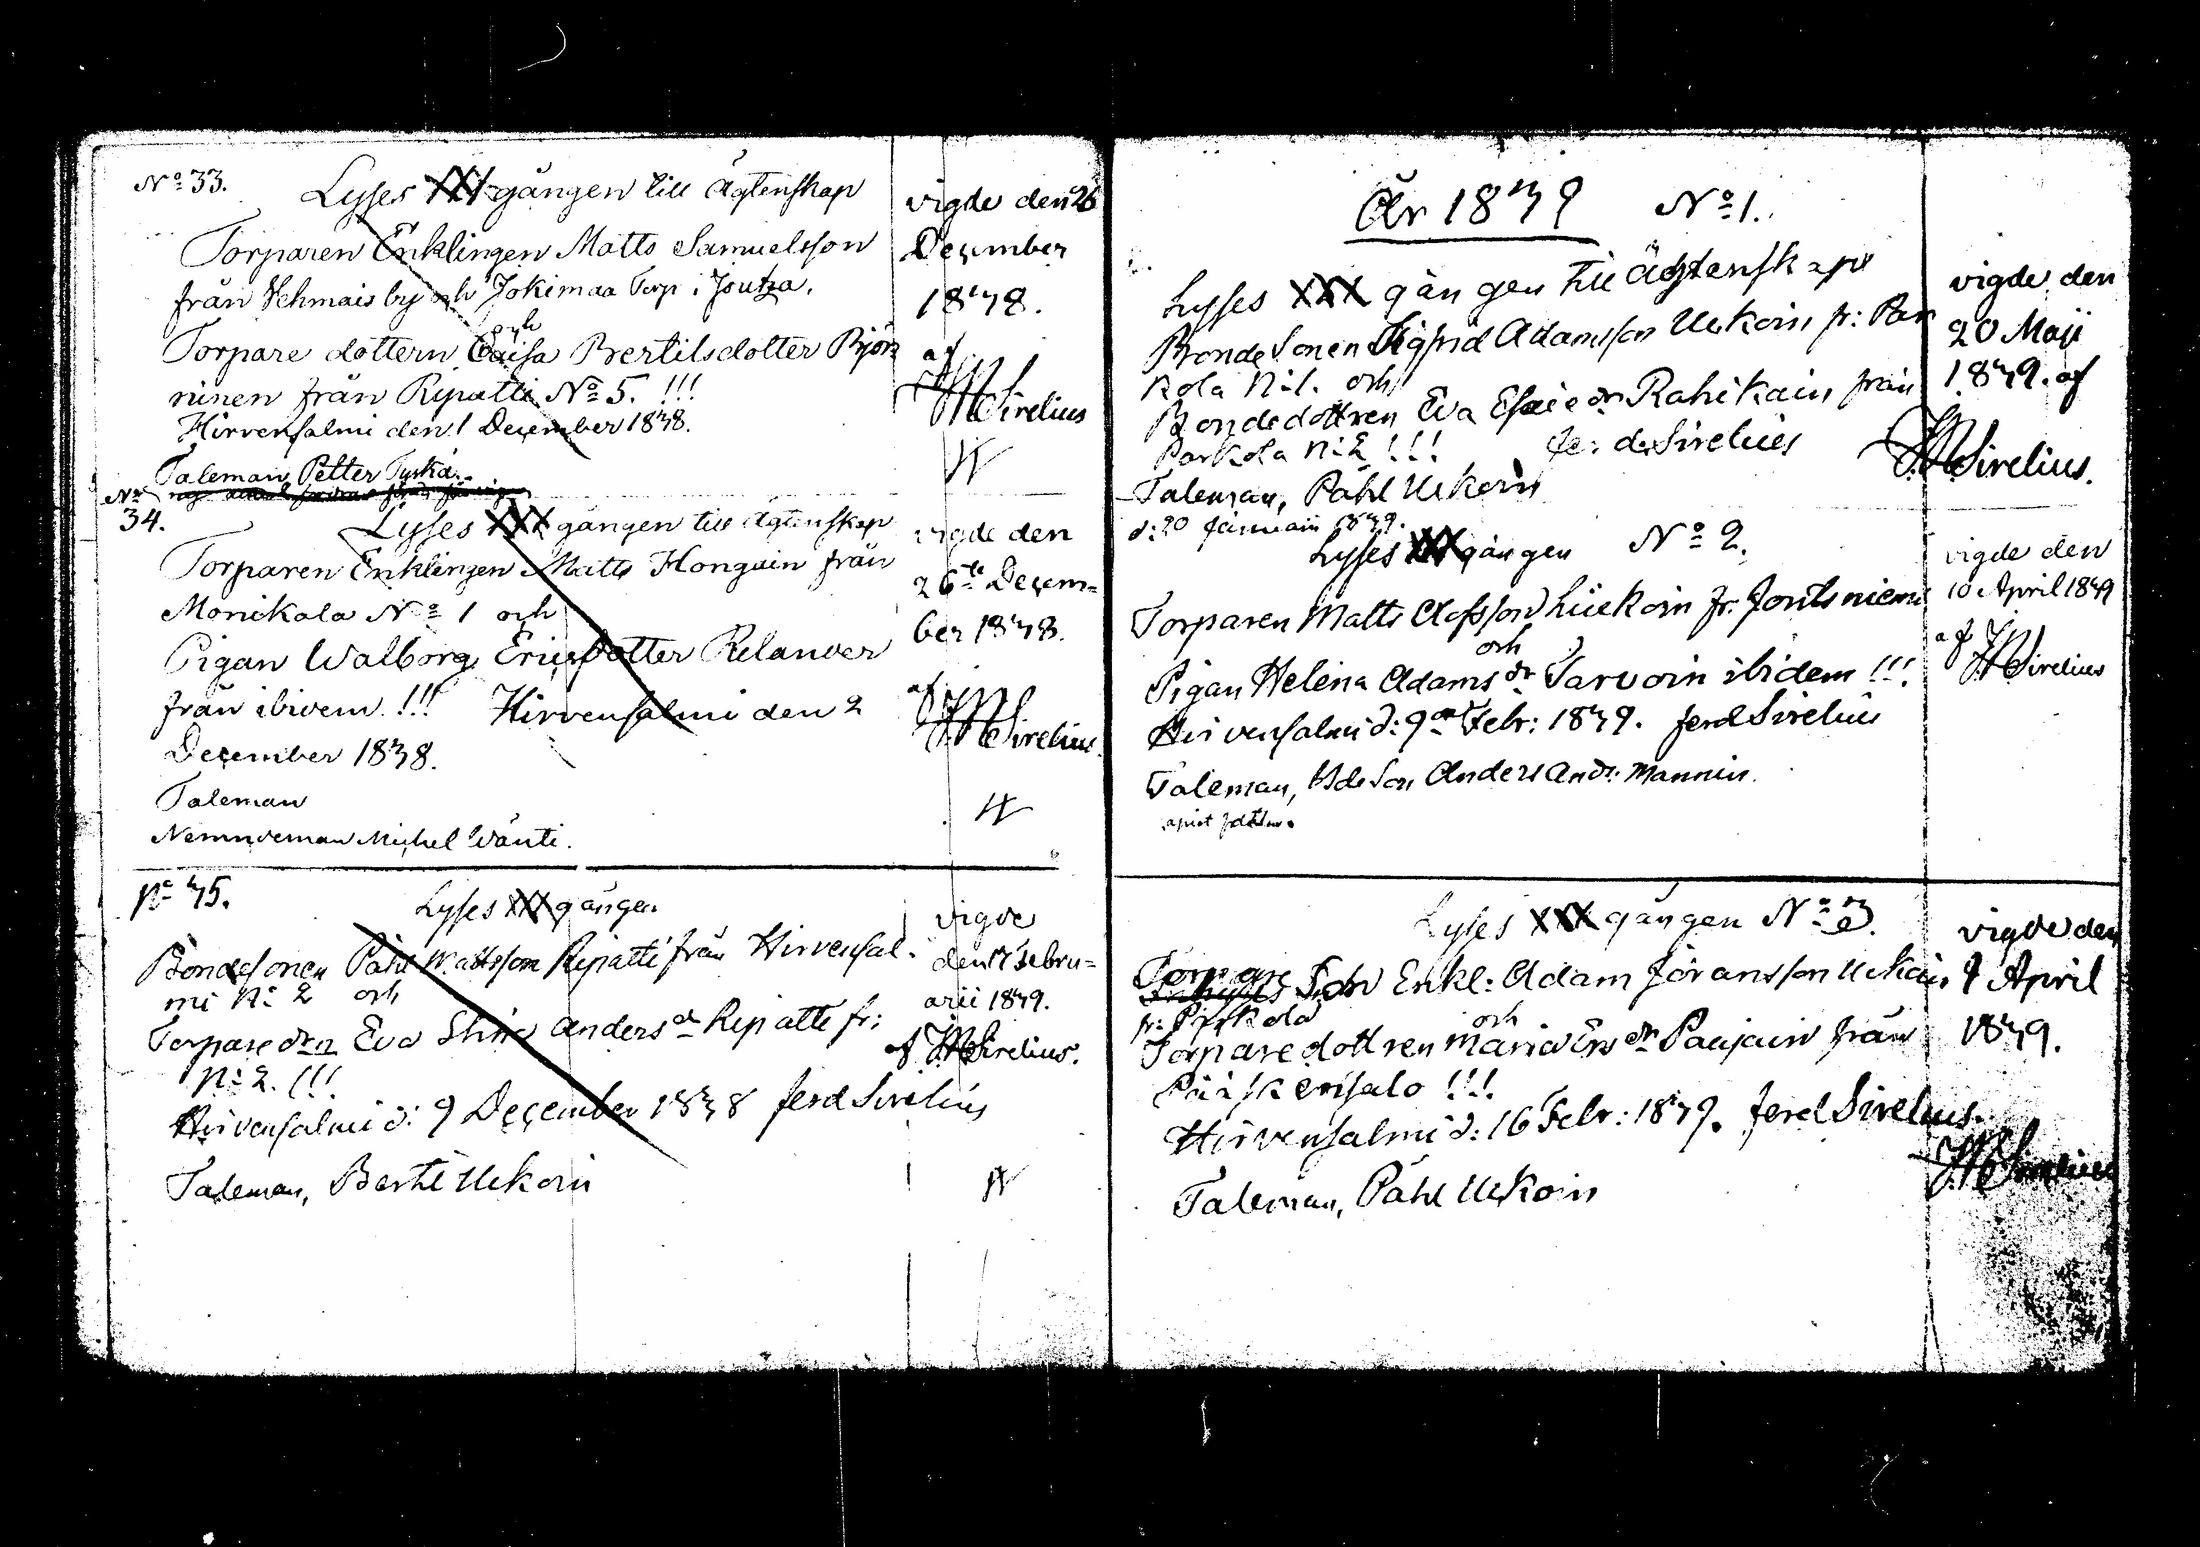 No 33.
Lyses XXX gången till Ägtenskap
Torparen Enklingen Matts Samuelsson
från Vehmais by och Jokimaa Torp i Joutza.
och
Torpare dottern Caisa Bertilsdotter Björ
ninen från Ripatti No 5. !!!
Hirvensalmi den 1 December 1838.
Taleman Petter Turkia.
vigde den 26
December
1838.
af
JMSirelius
No 34.
Lyses XXX gången till Ägtenskap
Torparen Enklingen Matts Hongain från
Monikala No 1 och
Pigan Walborg Ericsdotter Relander
från ibidem. !!! Hirvensalmi den 2
December 1838.
Taleman
Nemndeman Michel Wänti.
vigde den
26te Decem=
ber 1838.
af
JMSirelius.
No 35.
Lyses XXX gången
Bondesonen Påhl Mattsson Ripatti från Hirvensal.
mi No 2 och
Torpare dr Eva Stina Anders dr Ripatti fr:
No 2. !!!
Hirvensalmi d: 9 December 1838 ferd Sirelius
Taleman, Bertil Uekoin
vigde
den 17 Febru=
arii 1839.
af JMSirelius.
År 1839 No 1.
Lyses XXX gången till Ägtenskap
Bonde Sonen Sigfrid Adamsson Uekoin fr: Par
kola No 1. och
Bondedottren Eva Esaie dr Rahikain från
Parkola No 2 !!! fe: d. Sirelius
Taleman, Påhl Uekoin
d: 20 Januarii 1839.
vigde den
20 Maji
1839. af
JMSirelius.
Lyses XXX gången No 2.
Torparen Matts Olofsson Liiekoin fr. Joutsniemi
och
Pigan Helena Adams dr Tarvoin ibidem !!!
Hirvensalmi d: 9de Febr: 1839. ferd Sirelius
Taleman, Bde Son Anders And: Mannin.
vigde den
10 April 1839
af JMSirelius
Lyses XXX gången No 3.
Torpare Son Enkl: Adam Jöransson Uekoin
fr: Pyykölä och
Torpare dottren Maria Ers dr Paujain från
Pääskensalo !!!
Hirvensalmi d: 16 Febr: 1839. ferd Sirelius.
Taleman, Påhl Uekoin
vigde den
9 April
1839.
JMSirelius